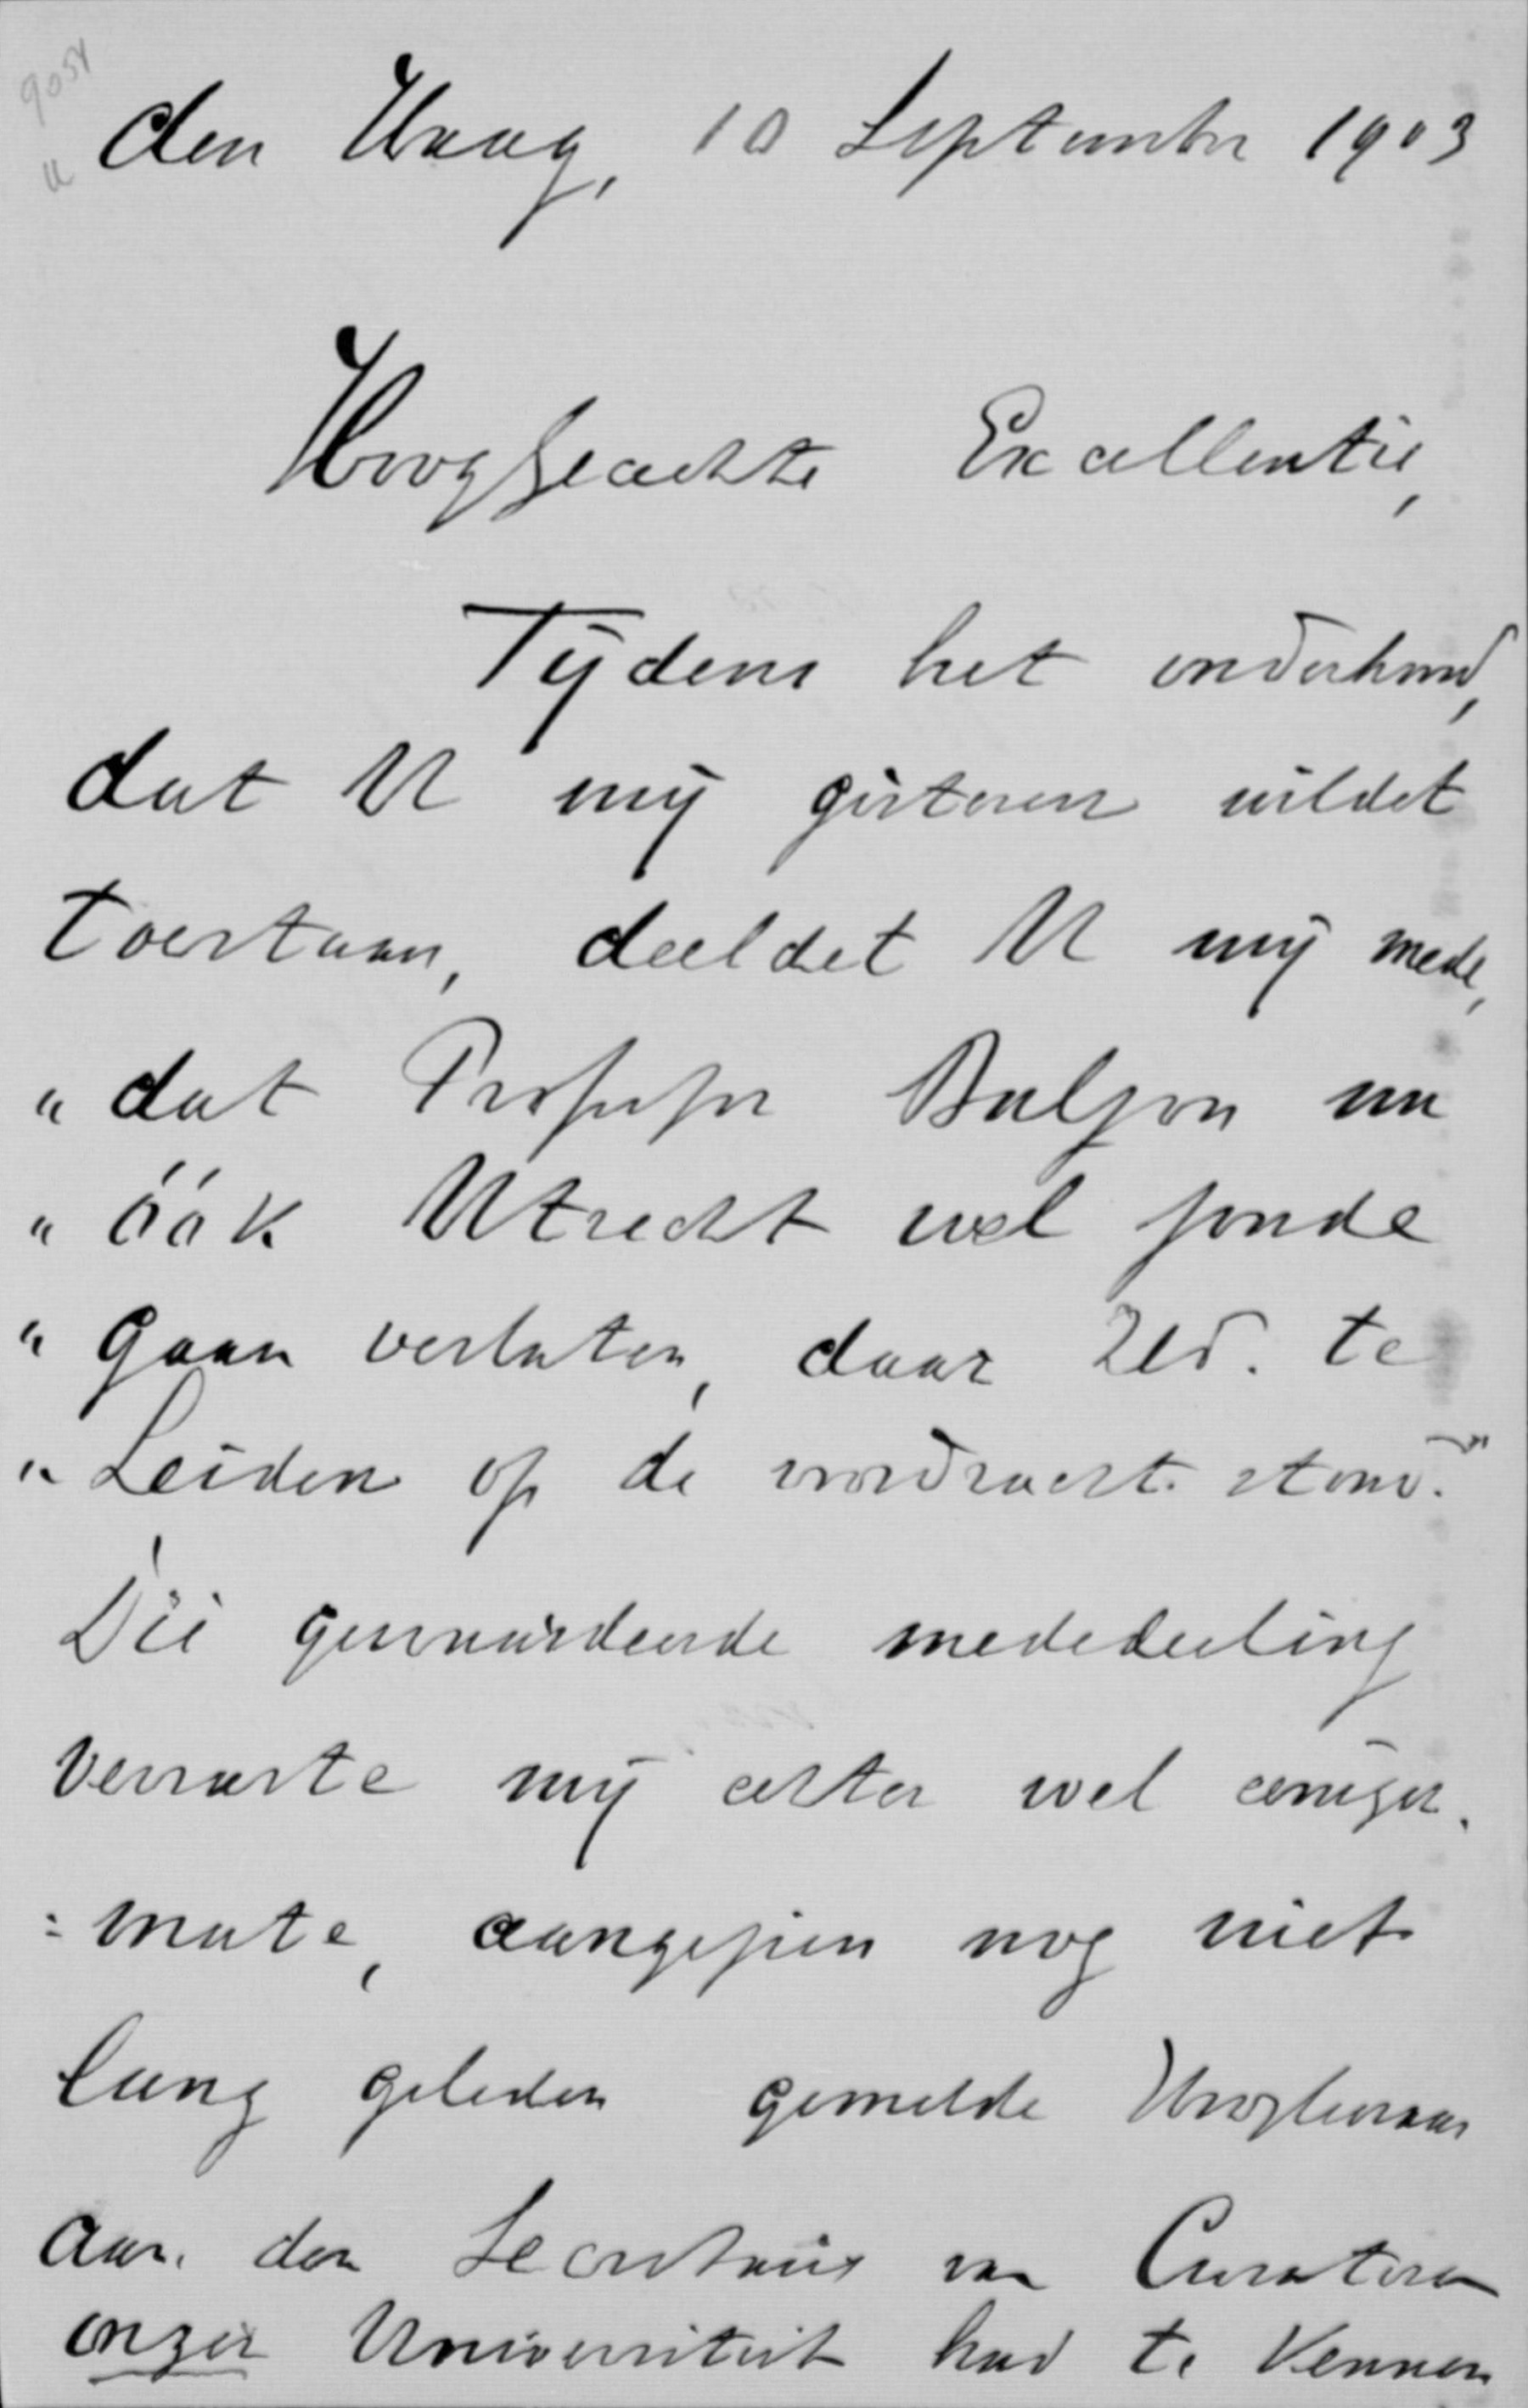 9054
den Haag, 10 September 1903
HoogGeachte Excellentie,
Tijdens het onderhoud,
dat U mij gisteren wildet
toestaan, deeldet U mij mede,
"dat Professor Baljon nu
"óók Utrecht wel zoude
"gaan verlaten, daar ZEd. te
"Leiden op de voordracht stond."
Die gewaardeerde mededeeling
verraste mij echter wel eeniger-
=mate, aangezien nog niet
lang geleden gemelde Hoogleeraar
aan den Secretaris van Curatoren
onzer Universiteit had te kennen